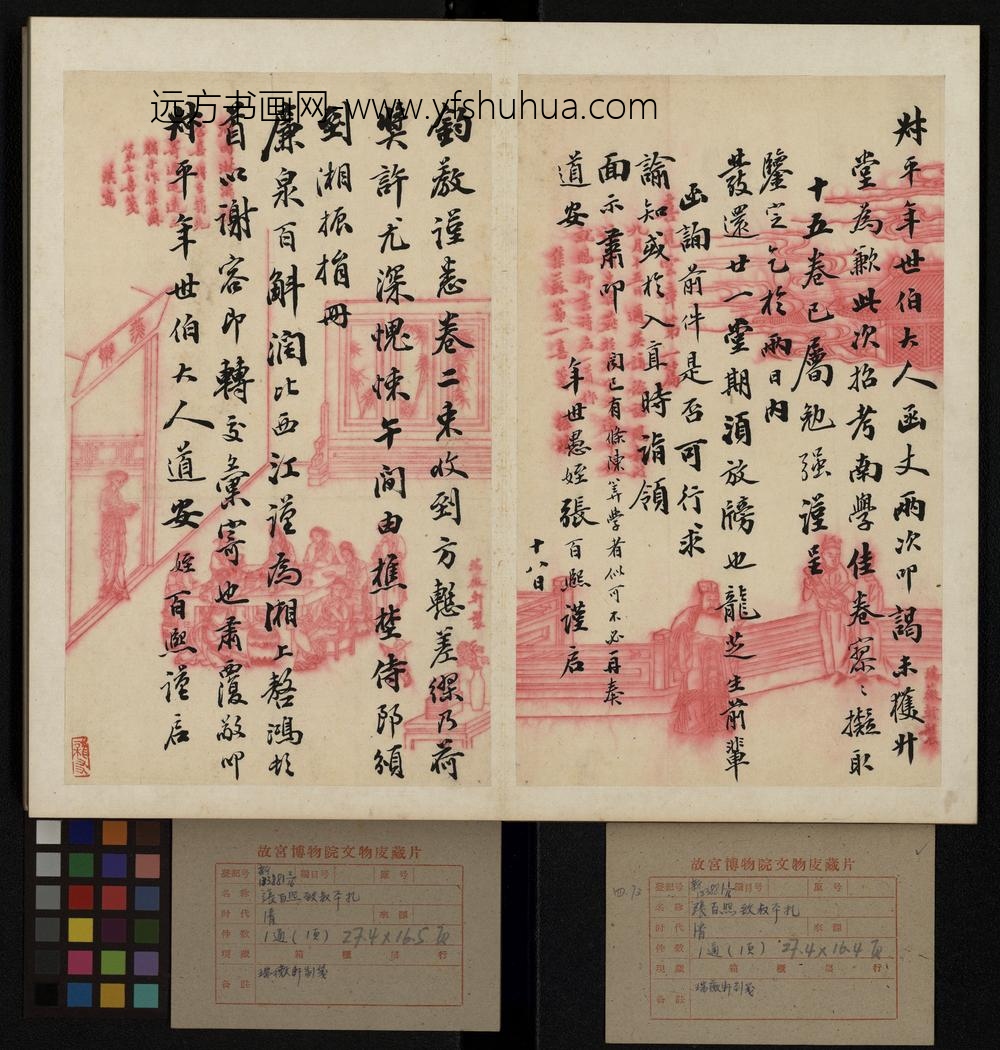 远方书画网 www.yfshuhua.com
叔平年世伯大人函丈兩次叩謁未獲升
堂為歉此次招考南學佳卷寥〻擬取
十五卷已屬勉强謹呈
鑒定乞於兩日內
發還廿一堂期須放牓也龍芝生前輩
函詢前件是否可行求
諭知或於入直時詣領
面示肅叩
道安
年世愚姪張百熙謹启
聞已有條陳筭學者似可不必再奏
十八日
鈞教謹悉卷二束收到方慙差繆乃荷
獎許尤深愧悚午間由樵埜侍郎頒
到湘振捐冊
廉泉百斛潤比西江謹為湘上嗸鴻
百叩以謝容即轉交彙寄也肅覆敬叩
叔平年世伯大人道安
姪百熙謹启
故宮博物院文物庋藏片
登記号
編目号
原号
名称
張百熙致叔平札
时代
清
來源
件数
1通(1頁) 27.4×16.5
現藏
箱
櫃
層
行
备註
瑞薇軒制箋
故宮博物院文物庋藏片
登記号
編目号
原号
名称
張百熙致叔平札
时代
清
來源
件数
1通(1頁) 27.4×16.4
現藏
箱
櫃
層
行
备註
瑞薇軒制箋